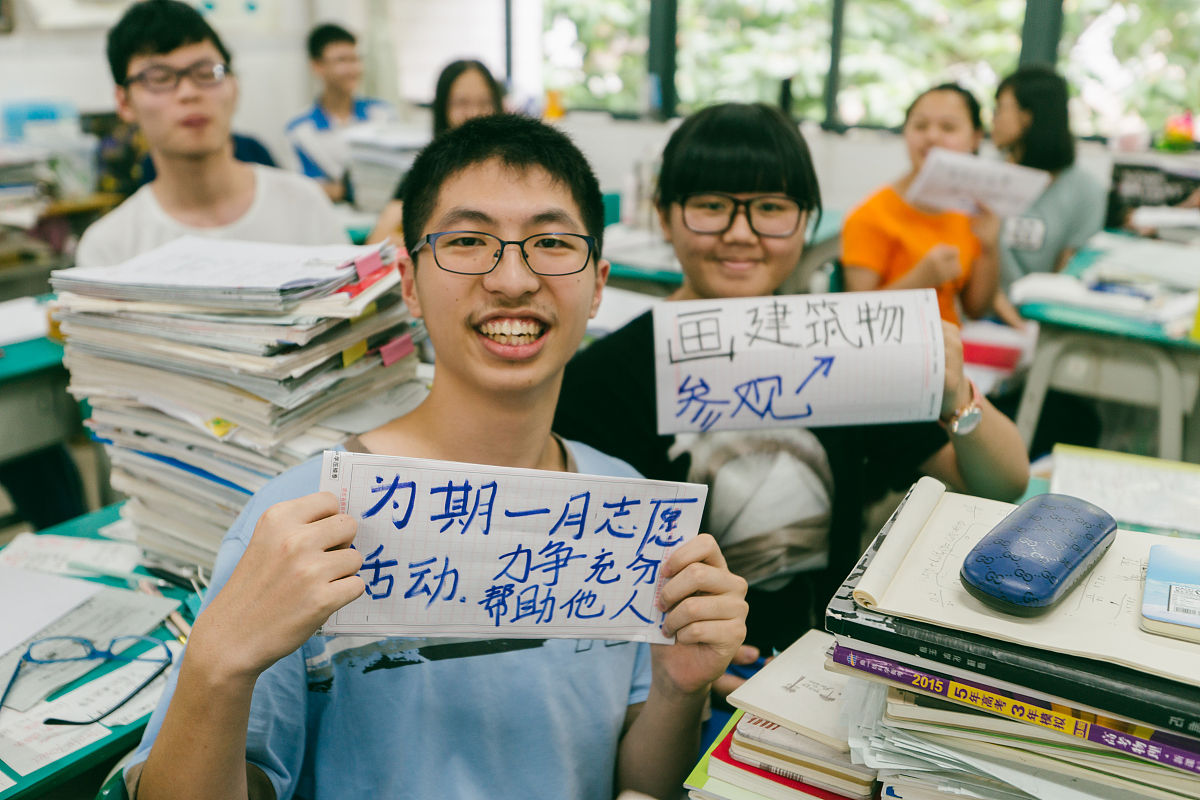 画建筑物
参观
为期一月志愿
活动.力争充分
帮助他人!
2015
5年高考3年模拟
高考物理